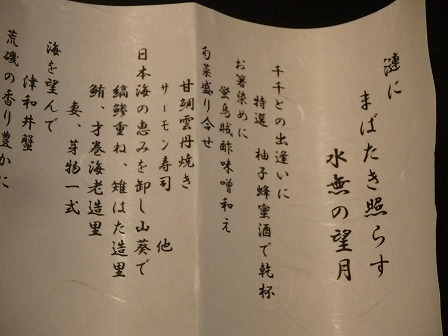 漣に
まばたき照らす
水無の望月
千千との出逢いに
特選 柚子蜂蜜酒で乾杯
お箸染めに
蛍烏賊酢味噌和え
旬菜盛り合せ
甘鯛雲丹焼き
サーモン寿司 他
日本海の恵みを卸し山葵で
縞鯵重ね、雉はた造里
鮪、才巻海老造里
妻、芽物一式
海を望んで
津和井蟹
荒磯の香り豊かに